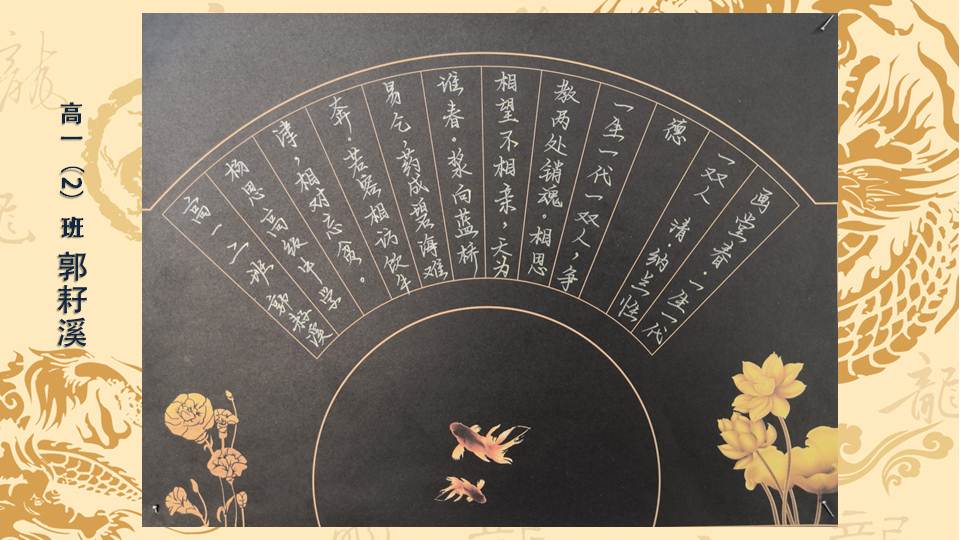 高一（2）班 郭耔溪
画堂春·一生一代
一双人 清·纳兰性
德
一生一代一双人，争
教两处销魂。相思
相望不相亲，天为
谁春。浆向蓝桥
易乞，药成碧海难
奔。若容相访饮牛
津，相对忘贫。
杨思高级中学
高一二班郭耔溪
龍
龍